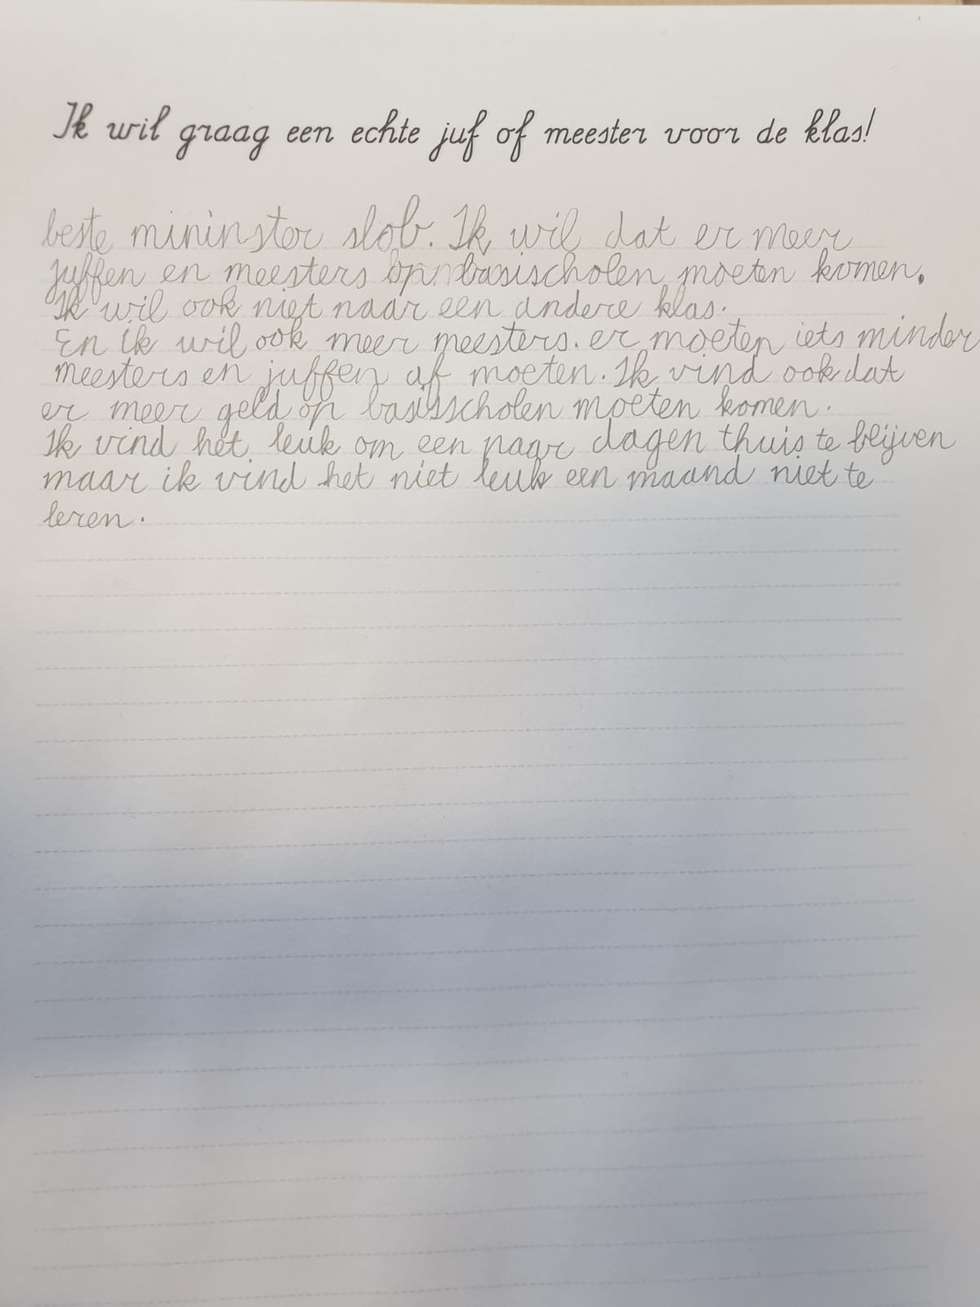 Ik wil graag een echte juf of meester voor de klas!
beste mininster slob. Ik wil dat er meer
juffen en meesters op basischolen moeten komen.
Ik wil ook niet naar een andere klas.
En ik wil ook meer meesters. er moeten iets minder
meesters en juffen af moeten. Ik vind ook dat
er meer geld op basisscholen moeten komen.
Ik vind het leuk om een paar dagen thuis te blijven
maar ik vind het niet leuk een maand niet te
leren.